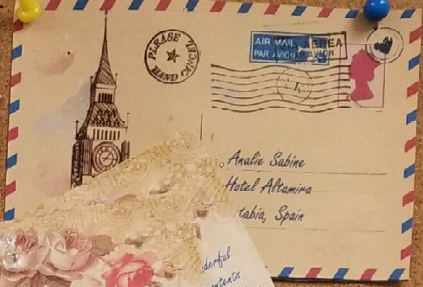 PLEASE
HAND CANCEL
AIR MAIL
PAR AVION
Analie Sabine
Hotel Altamira
tabia, Spain
derful
ontents